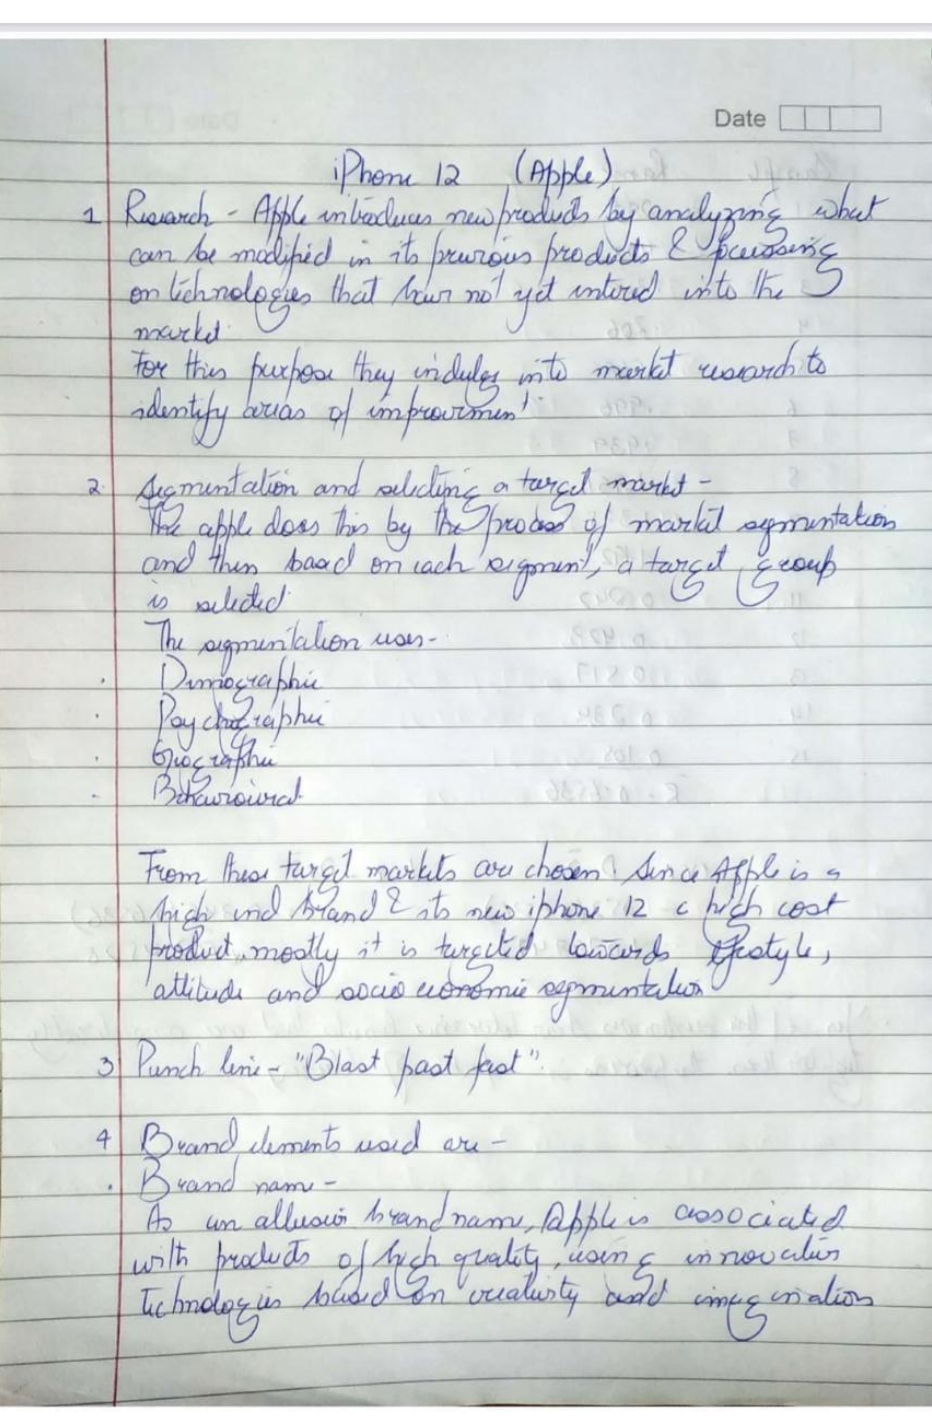 Date
iPhone 12 (Apple)
1 Research - Apple introduces new products by analyzing what
can be modified in its previous products & focussing
on technologies that have not yet entered into the
market.
For this purpose they indulge into market research to
identify areas of improvement
2. Segmentation and selecting a target market -
The apple does this by the process of market segmentation
and then based on each segment, a target group
is selected.
The segmentation uses -
. Demographic
. Psychographic
. Geographic
. Behavioural
From these target markets are chosen. Since Apple is a
high end brand & its new iphone 12 a high cost
product, mostly it is targeted towards lifestyle,
attitude and socio economic segmentation
3 Punch line - "Blast past fast".
4 Brand elements used are -
. Brand name -
As an allusion brand name, Apple is associated
with products of high quality, using innovative
technologies based on creativity and imagination